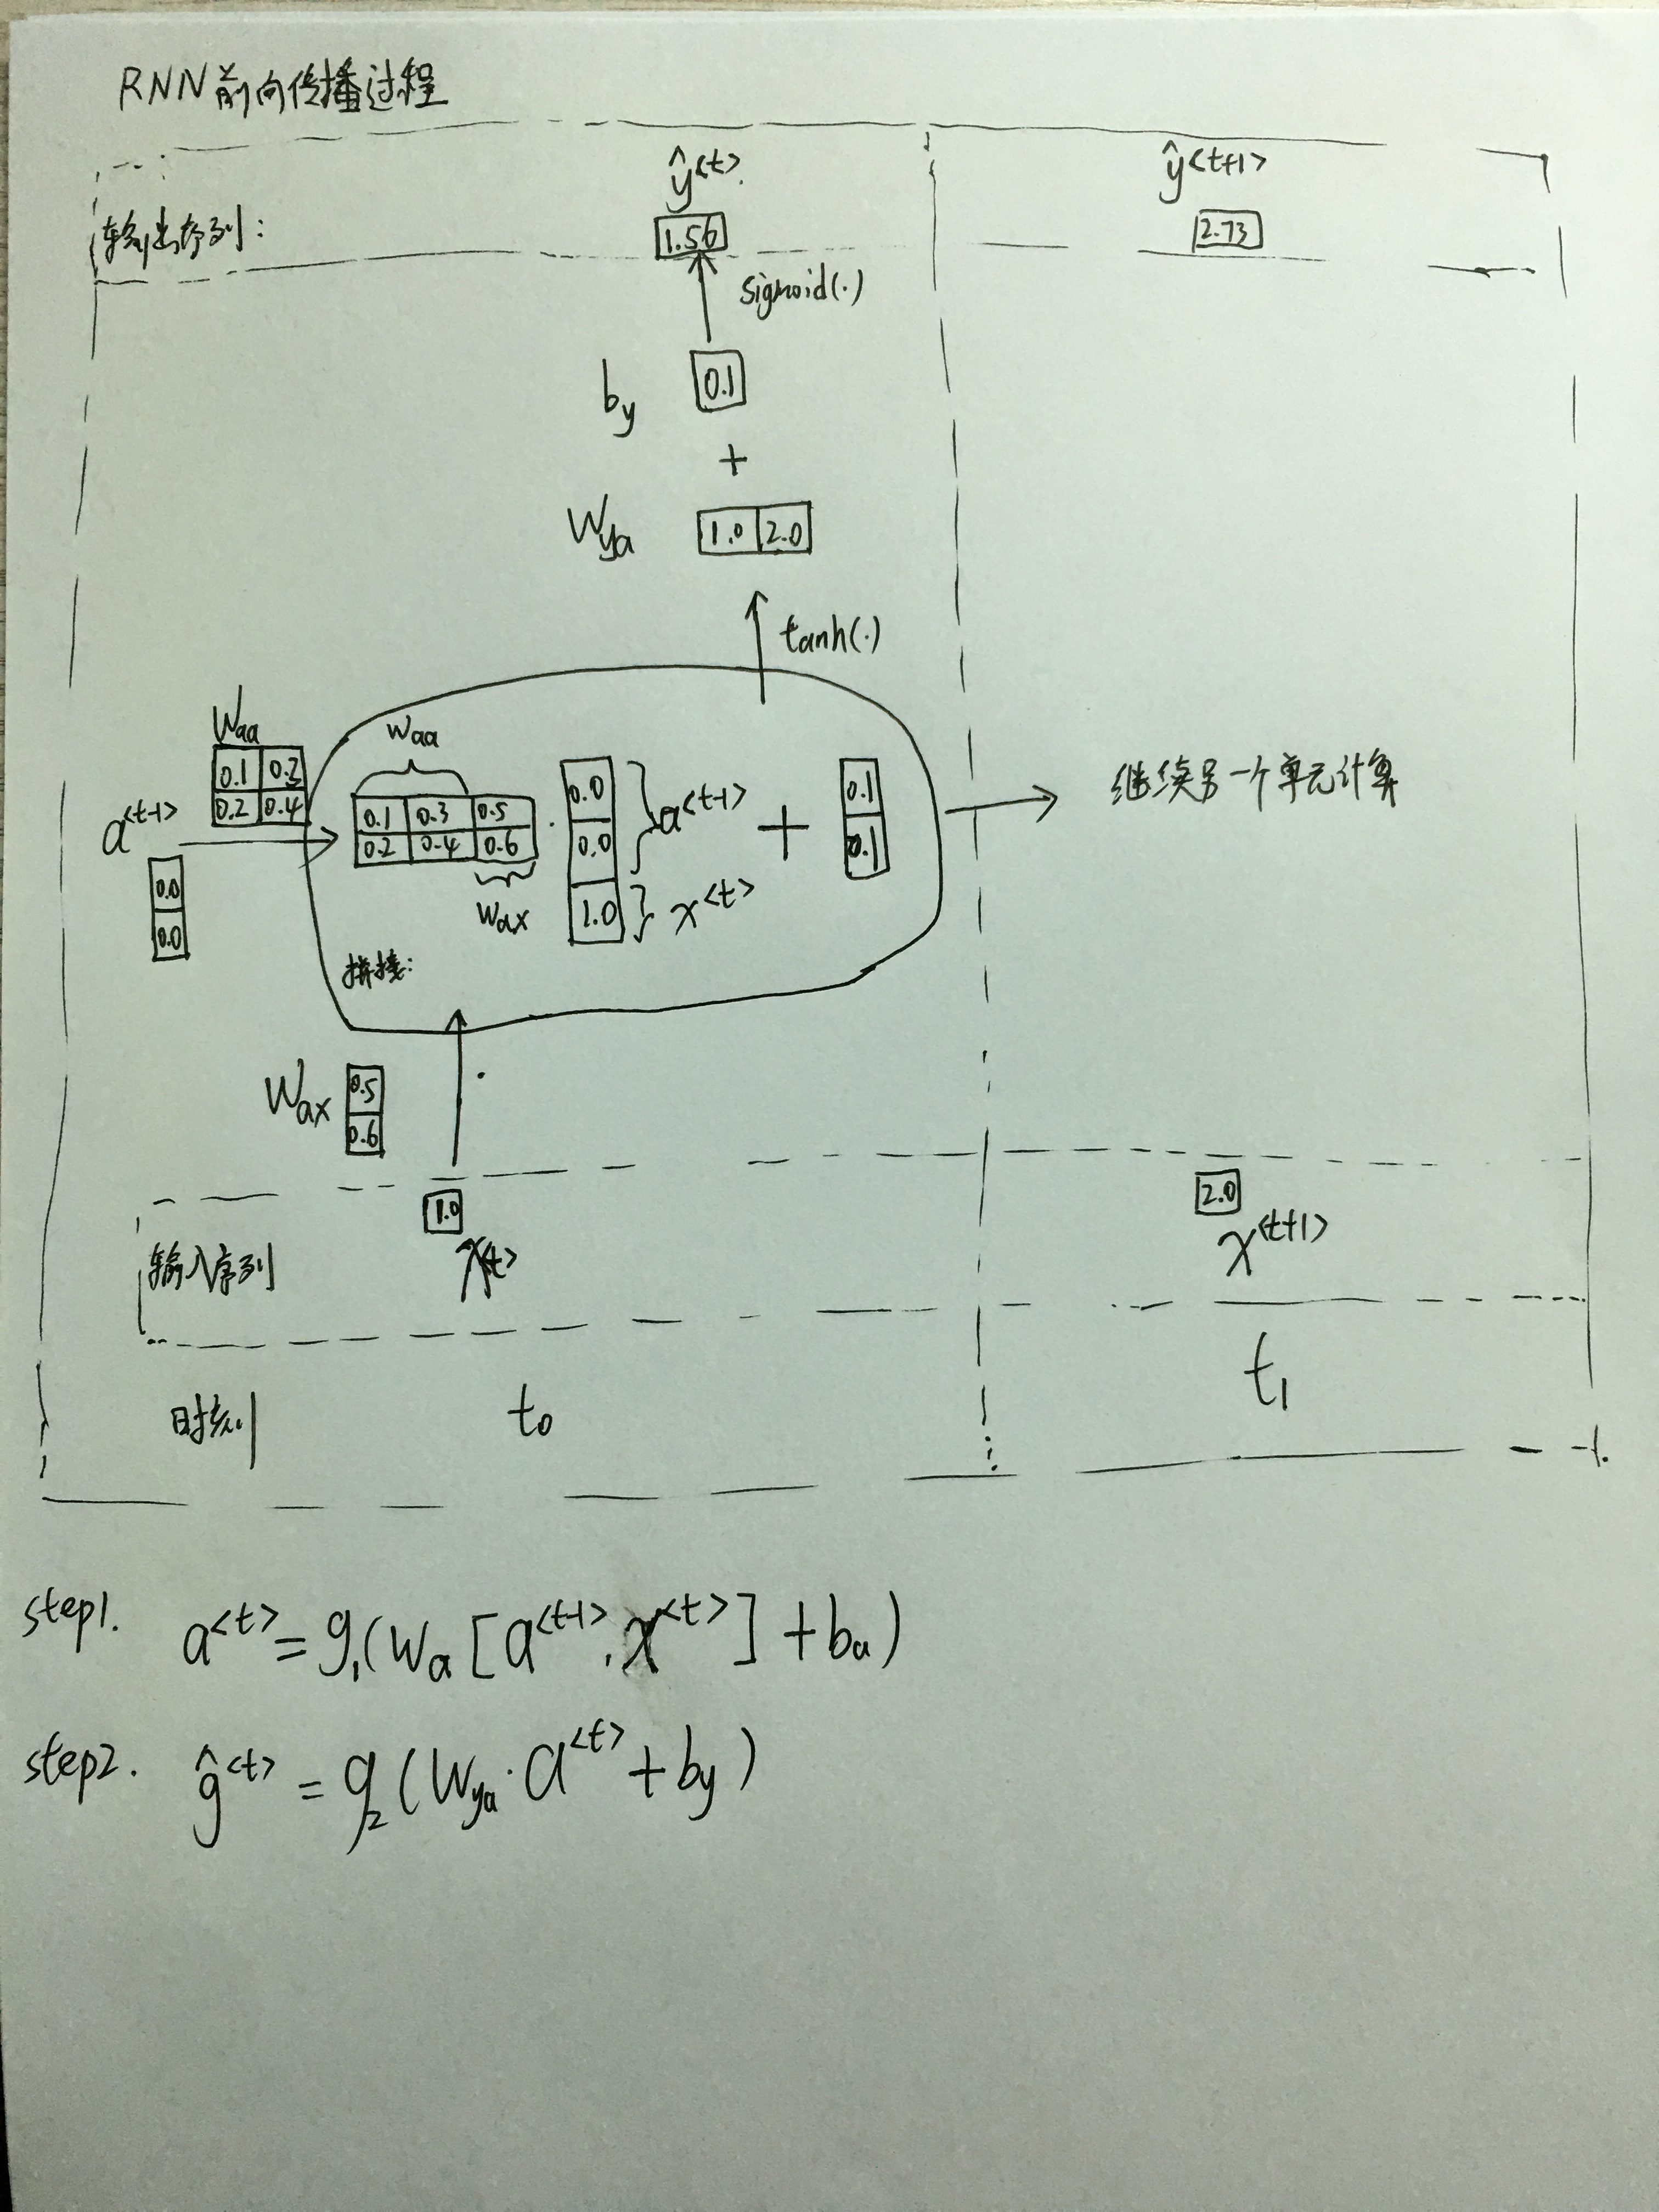 RNN前向传播过程
ŷ<t>
ŷ<t+1>
输出序列:
1.56
2.73
sigmoid(·)
by
0.1
+
Wya
1.0 2.0
tanh(·)
Waa
0.1 0.3
0.2 0.4
a<t-1>
0.0
0.0
Waa
0.1 0.3 0.5
0.2 0.4 0.6
Wax
·
0.0
0.0
1.0
a<t-1>
x<t>
+
0.1
0.1
拼接:
继续另一个单元计算
Wax
0.5
0.6
·
1.0
2.0
输入序列
x<t>
x<t+1>
时刻
t0
t1
step1. a<t> = g1(Wa[a<t-1>, x<t>] + ba)
step2. ŷ<t> = g2(Wya · a<t> + by)